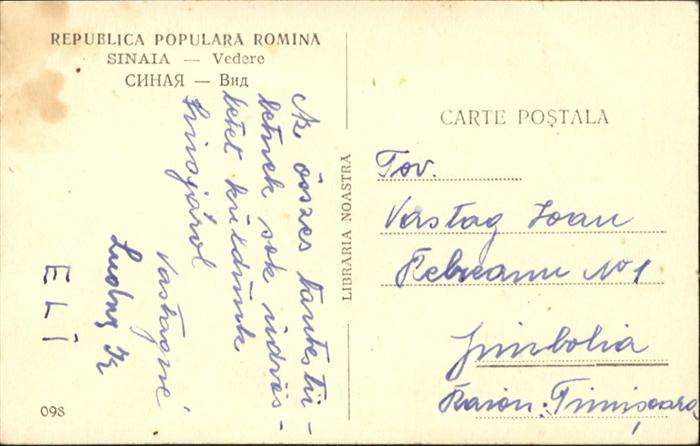 REPUBLICA POPULARĂ ROMÎNĂ
SINAIA — Vedere
СИНАЯ — Вид
Az összes tantestü-
letnek sok üdvöz-
letet küldünk
Sinajáról
Vastagné
Ludwig
ELI
098
LIBRARIA NOASTRA
CARTE POȘTALA
Tov.
Vastag Ioan
Rebreanu No 1
Jimbolia
Raion: Timișoara